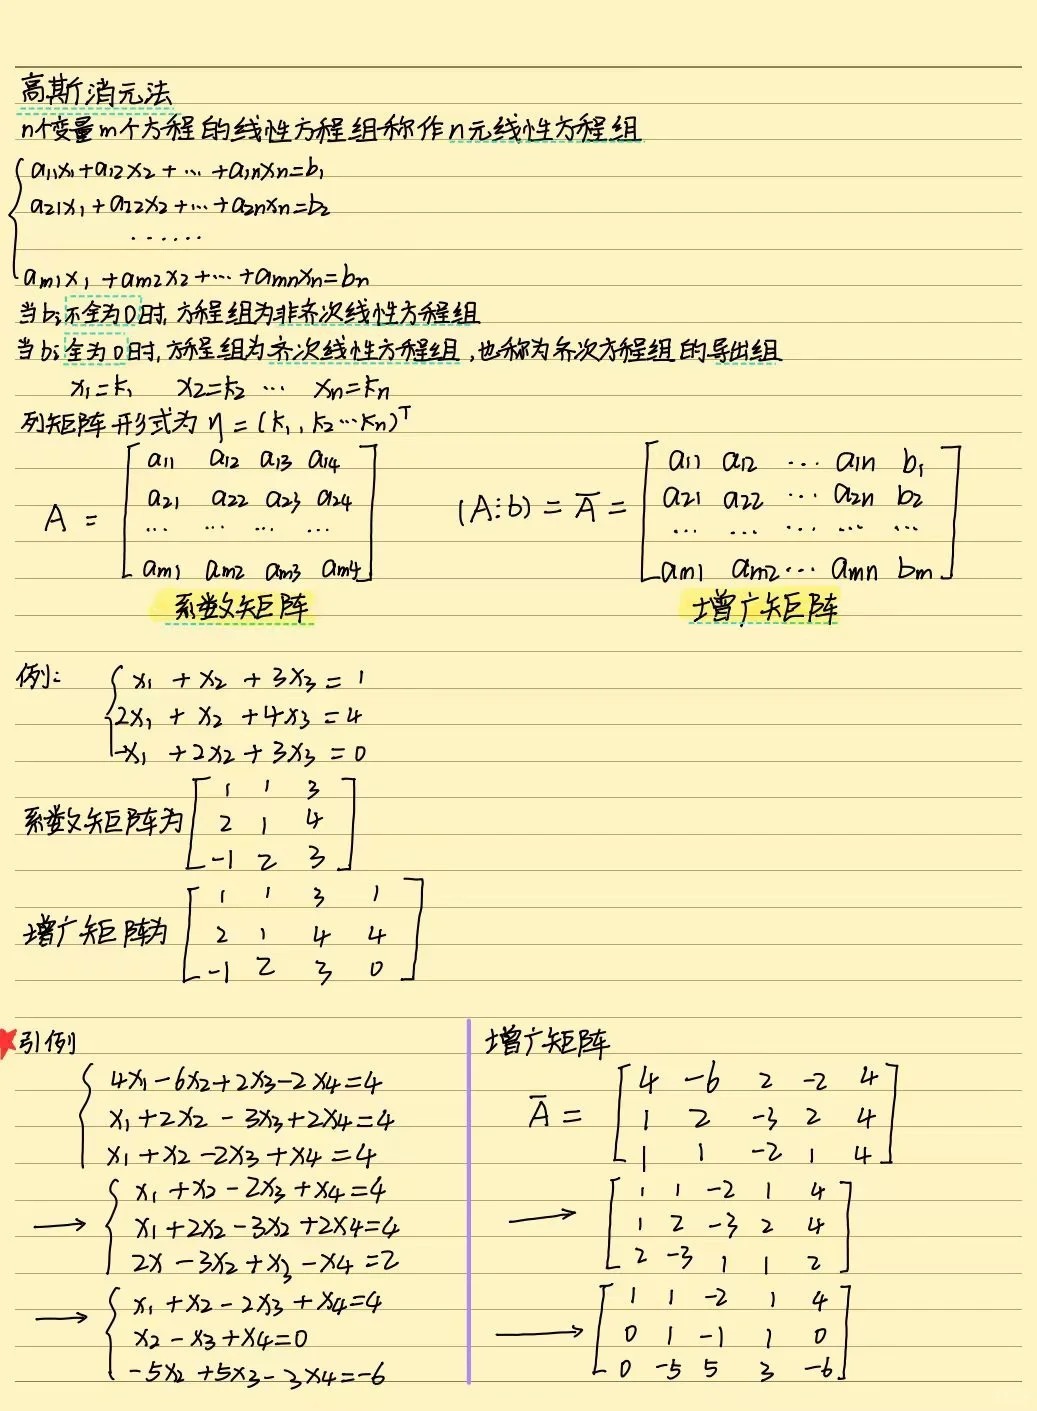 高斯消元法
n个变量m个方程的线性方程组称作n元线性方程组
a11x1+a12x2+…+a1nxn=b1
a21x1+a22x2+…+a2nxn=b2
......
am1x1+am2x2+…+amnxn=bn
当bi不全为0时,方程组为非齐次线性方程组
当bi全为0时,方程组为齐次线性方程组,也称为齐次方程组的导出组
x1=k1 x2=k2 … xn=kn
列矩阵形式为η=(k1,k2…kn)^T
a11 a12 a13 a14
a21 a22 a23 a24
A =
… … … …
am1 am2 am3 am4
系数矩阵
a11 a12 … a1n b1
a21 a22 … a2n b2
(A⋮b) = Ā =
… … … … …
am1 am2 … amn bm
增广矩阵
例:
x1 + x2 + 3x3 = 1
2x1 + x2 + 4x3 = 4
-x1 + 2x2 + 3x3 = 0
系数矩阵为
1 1 3
2 1 4
-1 2 3
增广矩阵为
1 1 3 1
2 1 4 4
-1 2 3 0
引例
4x1-6x2+2x3-2x4=4
x1+2x2-3x3+2x4=4
x1+x2-2x3+x4=4
→
x1+x2-2x3+x4=4
x1+2x2-3x2+2x4=4
2x-3x2+x3-x4=2
→
x1+x2-2x3+x4=4
x2-x3+x4=0
-5x2+5x3-3x4=-6
增广矩阵
Ā =
4 -6 2 -2 4
1 2 -3 2 4
1 1 -2 1 4
→
1 1 -2 1 4
1 2 -3 2 4
2 -3 1 1 2
→
1 1 -2 1 4
0 1 -1 1 0
0 -5 5 3 -6